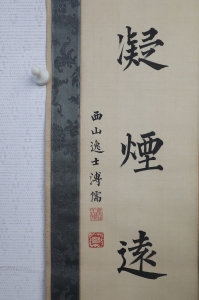 凝煙遠
西山逸士溥儒